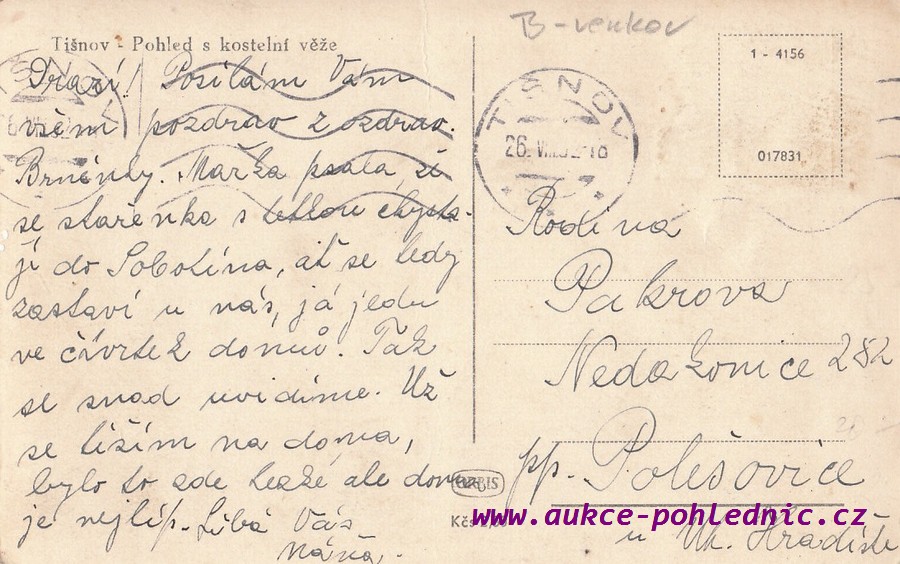 B-venkov
Tišnov - Pohled s kostelní věže
1 - 4156
017831
TIŠNOV
26. VIII. -18
Drazí! Posílám Vám
všem pozdrav z ozdrav.
Brněnky. Mařka psala, že
se stařenka s tetkou chysta-
jí do Sobotína, ať se tedy
zastaví u nás, já jedu
ve čtvrtek domů. Tak
se snad uvidíme. Už
se těším na doma,
bylo to zde hezké ale doma
je nejlíp. Líbá Vás
Náňa.
Rodina
Pakrova
Nedakonice 282
pp. Polešovice
u Uh. Hradiště
ORBIS
Kčs
www.aukce-pohlednic.cz